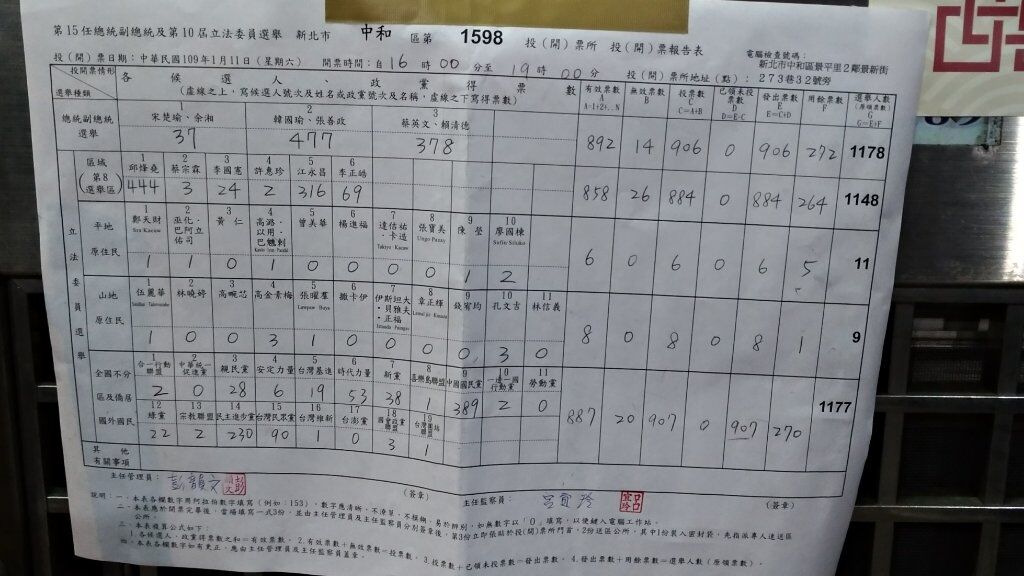 第15任總統副總統及第10屆立法委員選舉 新北市 中和 區第 1598 投(開)票所 投(開)票報告表
電腦檢查號碼：
投(開)票日期：中華民國109年1月11日(星期六) 開票時間：自16時00分至19時00分 投(開)票所地址(點)：新北市中和區景平里2鄰景新街273巷32號旁
投開票情形 選舉種類
各候選人、政黨得票數
(虛線之上，寫候選人號次及姓名或政黨號次及名稱，虛線之下寫得票數)
有效票數 A A=1+2+..N 無效票數 B 投票數 C C=A+B 已領未投票數 D D=E-C 發出票數 E E=C+D 用餘票數 F 選舉人數 (原領票數) G G=E+F
總統副總統選舉
1 2 3
宋楚瑜、余湘 韓國瑜、張善政 蔡英文、賴清德
37 477 378 892 14 906 0 906 272 1178
立法委員選舉
區域 (第8選舉區)
1 2 3 4 5 6
邱烽堯 蔡宗霖 李國憲 許惠珍 江永昌 李正皓
444 3 24 2 316 69 858 26 884 0 884 264 1148
平地原住民
1 2 3 4 5 6 7 8 9 10
鄭天財 Sra Kacaw 巫化‧巴阿立佑司 黃仁 高潞‧以用‧巴魕剌 曾美華 楊進福 達佶祐‧卡造 Takiyo Kacaw 張寶美 陳瑩 廖國棟 Sufin Siluko
1 1 0 1 0 0 0 0 1 2 6 0 6 0 6 5 11
山地原住民
1 2 3 4 5 6 7 8 9 10 11
伍麗華 林曉婷 高畹芯 高金素梅 張曜羣 撒卡伊 伊斯坦大‧貝雅夫‧正福 章正輝 錢宥均 孔文吉 林信義
1 0 0 3 1 0 0 0 0 3 0 8 0 8 0 8 1 9
全國不分區及僑居國外國民
1 2 3 4 5 6 7 8 9 10 11
合一行動聯盟 中華統一促進黨 親民黨 安定力量 台灣基進 時代力量 新黨 喜樂島聯盟 中國國民黨 一邊一國行動黨 勞動黨
2 0 28 6 19 53 38 1 389 2 0 887 20 907 0 907 270 1177
12 13 14 15 16 17 18 19
綠黨 宗教聯盟 民主進步黨 台灣民眾黨 台灣維新 台澎黨 國會政黨聯盟 台灣團結聯盟
22 2 230 90 1 0 3 1
其他有關事項
主任管理員： (簽章) 主任監察員： (簽章)
說明：一、本表各欄數字用阿拉伯數字填寫(例如：153)，數字應清晰、不潦草、不模糊、易於辨別，如無數字以「0」填寫，以便鍵入電腦工作站。
二、本表應於開票完畢後，當場填寫一式3份，並由主任管理員及主任監察員分別簽章後，第3份立即張貼於投(開)票所門首，2份送區公所，其中1份裝入密封袋，先指派專人送送區公所。
三、本表複算公式如下：
1.各候選人、政黨得票數之和=有效票數。 2.有效票數+無效票數=投票數。 3.投票數+已領未投票數=發出票數。 4.發出票數+用餘票數=選舉人數(原領票數)。
四、本表各欄數字如有更正，應由主任管理員及主任監察員蓋章。